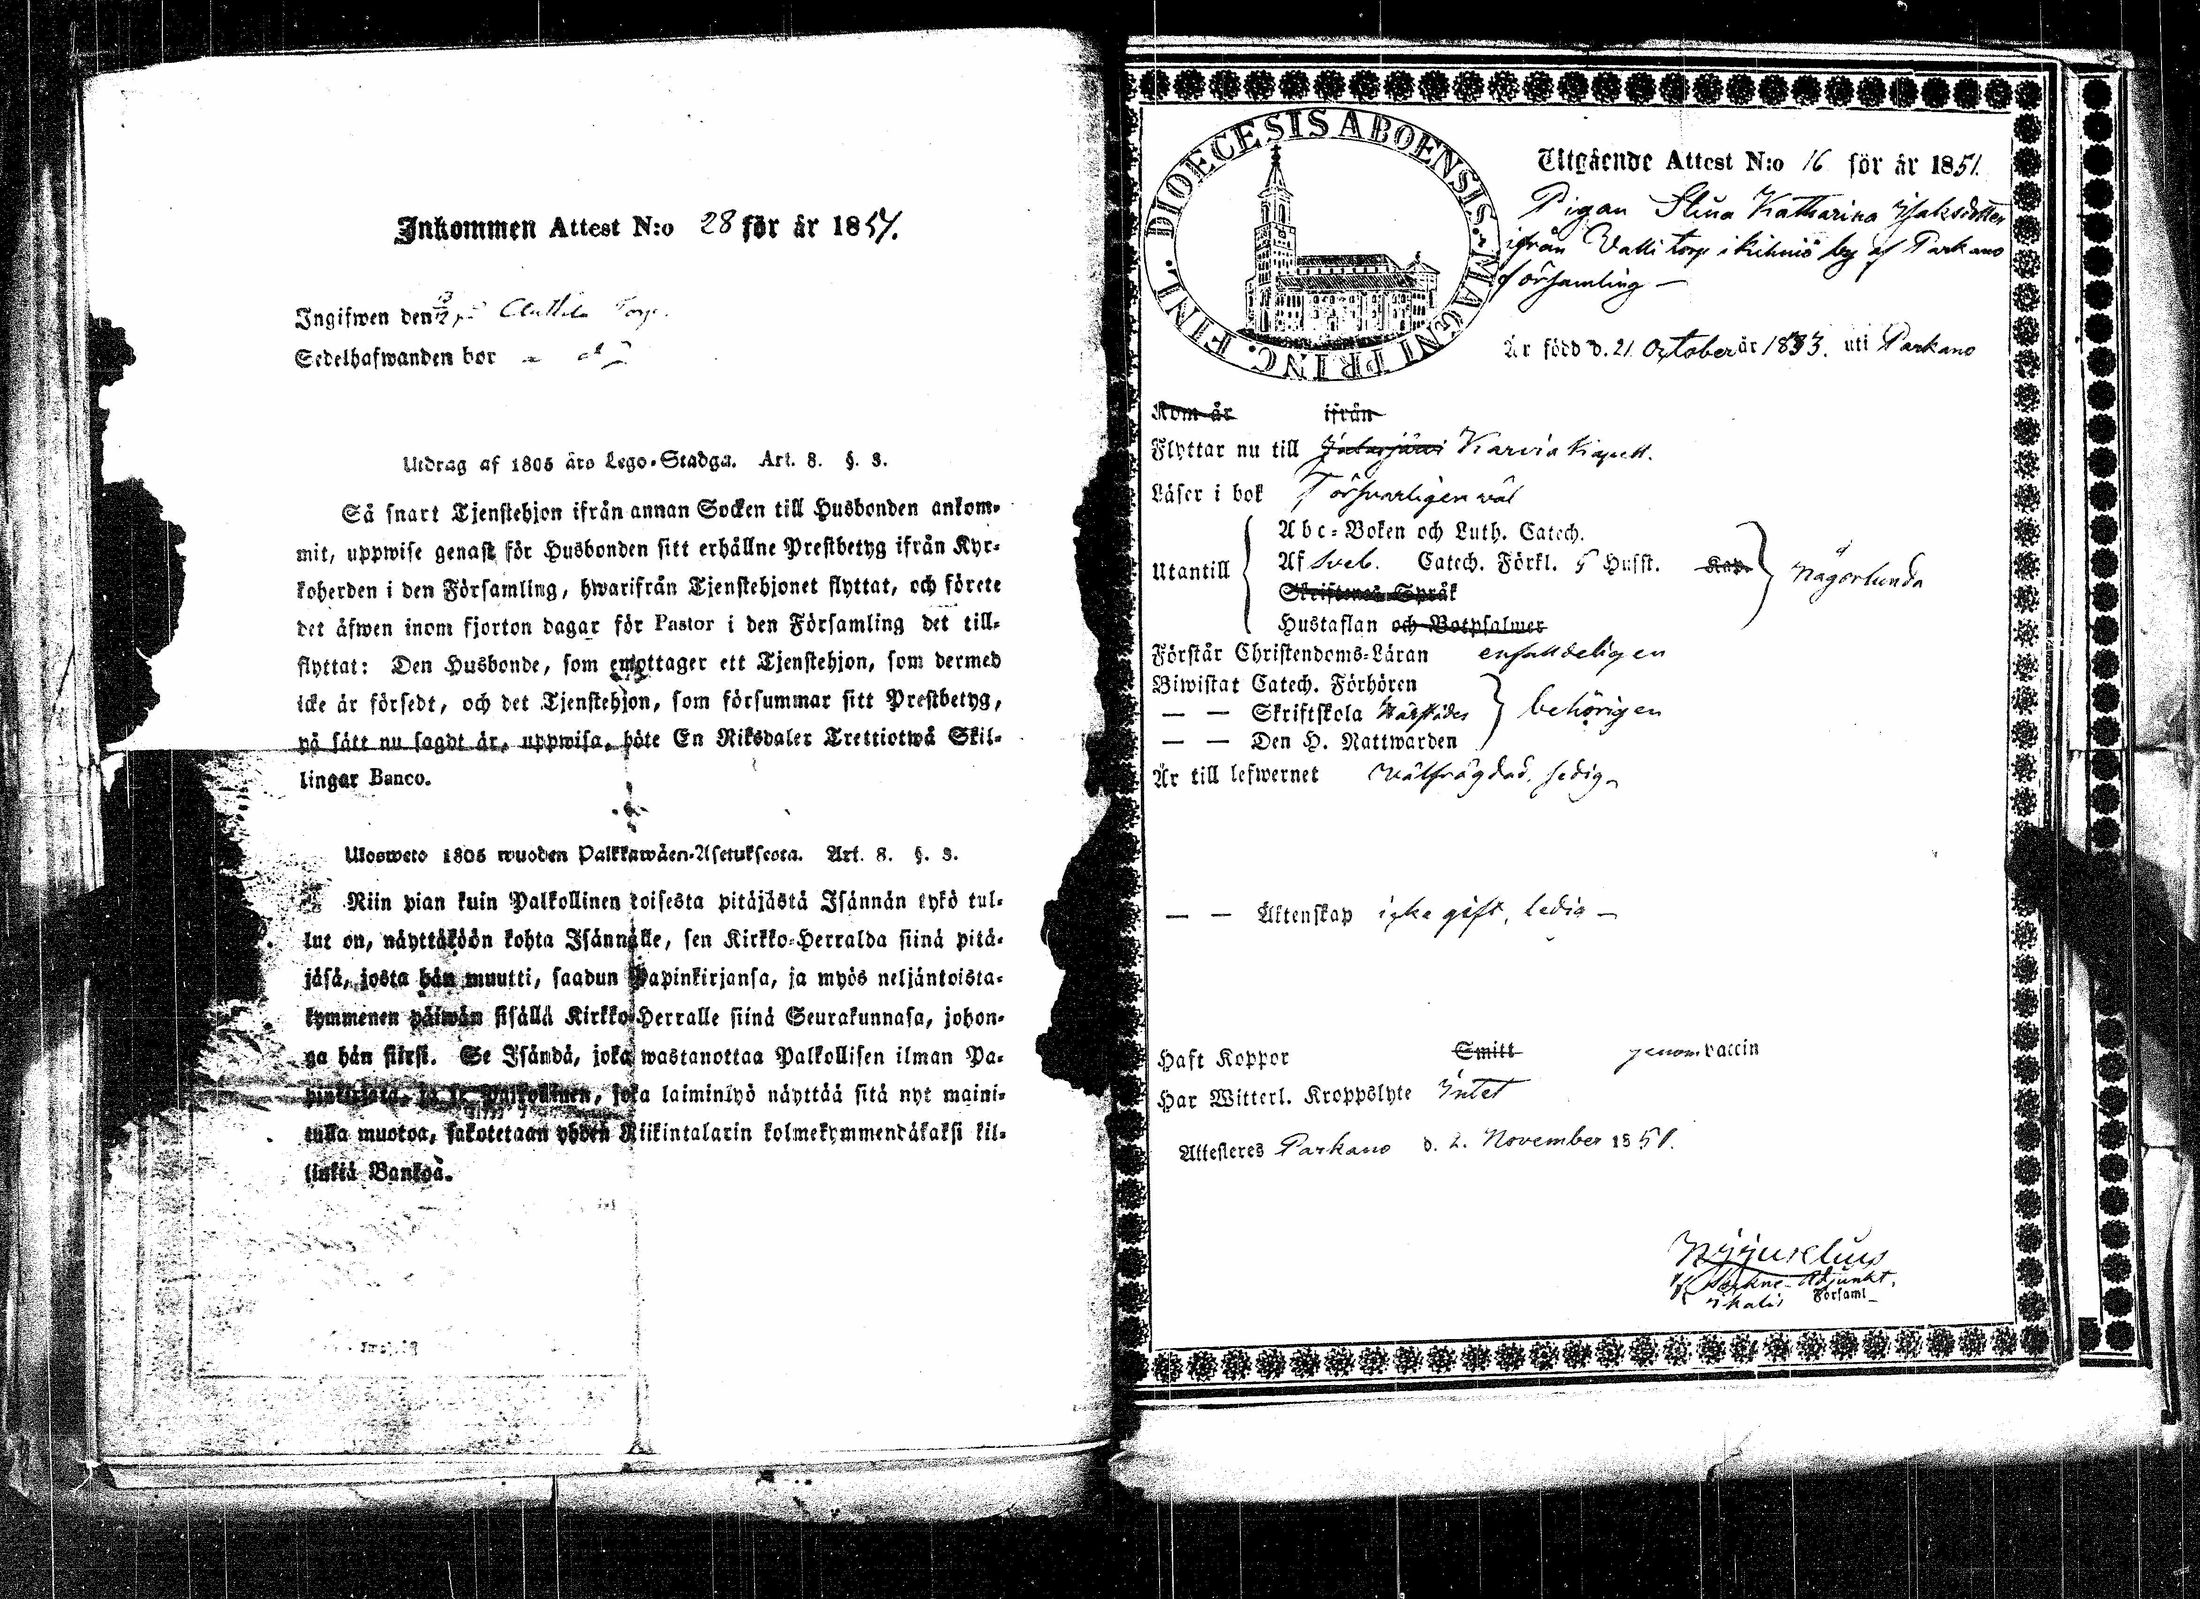 Inkommen Attest N:o 28 för år 1851.
Ingifwen den 13/12 på Torp.
Sedelhafwanden bor
Utdrag af 1805 års Lego-Stadga. Art. 8. §. 3.
Så snart Tjenstehjon ifrån annan Socken till Husbonden ankom-
mit, uppwise genast för Husbonden sitt erhållne Prestbetyg ifrån Kyr-
koherden i den Församling, hwarifrån Tjenstehjonet flyttat, och förete
det äfwen inom fjorton dagar för Pastor i den Församling det till-
flyttat: Den Husbonde, som emottager ett Tjenstehjon, som dermed
icke är försedt, och det Tjenstehjon, som försummar sitt Prestbetyg,
på sätt nu sagdt är, uppwisa, böte En Riksdaler Trettiotwå Skil-
lingar Banco.
Ulosweto 1805 wuoden Palkkawäen-Asetuksesta. Art. 8. §. 3.
Niin pian kuin Palkollinen toisesta pitäjästä Isännän tykö tul-
lut on, näyttäköön kohta Isännälle, sen Kirkko-Herralda siinä pitä-
jäsä, josta hän muutti, saadun Papinkirjansa, ja myös neljäntoista-
kymmenen päiwän sisällä Kirkko-Herralle siinä Seurakunnasa, johon-
ga hän siirsi. Se Isändä, joka wastanottaa Palkollisen ilman Pa-
pinkirjata, ja se Palkollinen, joka laiminlyö näyttää sitä nyt maini-
tulla muotoa, sakotetaan yhden Riikintalarin kolmekymmendäkaksi kil-
linkiä Bankoa.
DIOECESIS ABOENSIS. MAGNI PRINC. FINL.
Utgående Attest N:o 16 för år 1851.
Pigan Stina Katharina Isaksdotter
ifrån Valli torp i Kihniö by af Parkano
församling —
Är född d. 21 October år 1833. uti Parkano
Kom år ifrån
Flyttar nu till Ikalis Karvia Kapell.
Läser i bok Försvarligen väl
Utantill
Abc-Boken och Luth. Catech.
Af Sveb. Catech. Förkl. 5 Husst. Kap.
Skriftenes Språk
Hustaflan och Botpsalmer
någorlunda
Förstår Christendoms-Läran enfalldeligen
Biwistat Catech. Förhören
— — Skriftskola härstädes
— — Den H. Nattwarden
behörigen
Är till lefwernet välfrägdad, sedig
— — Äktenskap icke gift, ledig —
Haft Koppor Smitt genom vaccin
Har Witterl. Kroppslyte Intet
Attesteres Parkano d. 2. November 1851.
Adjunkt.
Ikalis Församl